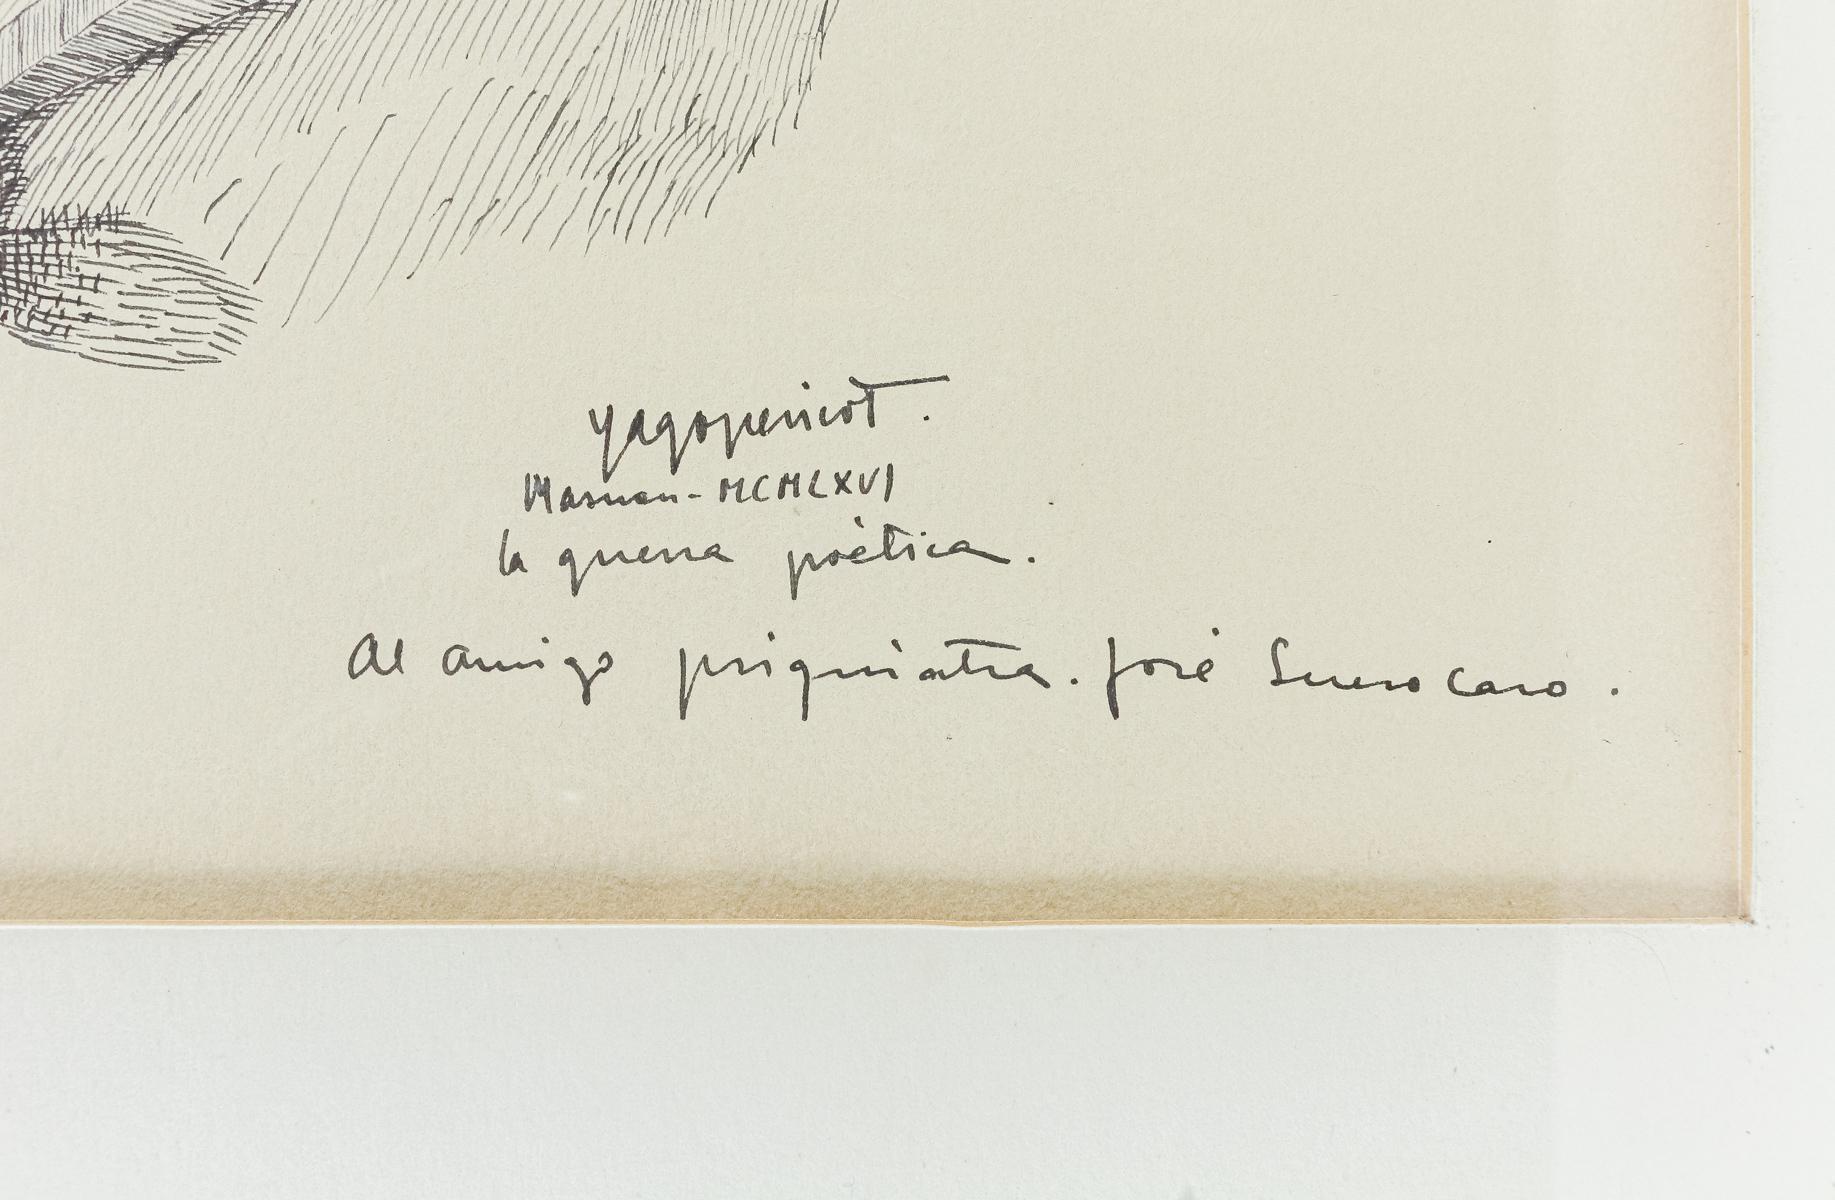 yagopericot.
Masnou - MCMLXVI
la guerra poètica.
Al amigo psiquiatra. José Suero Caro.